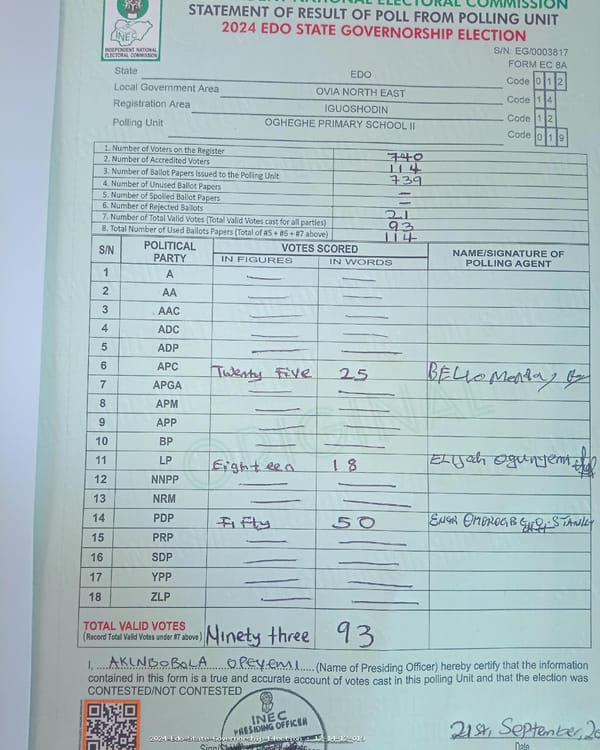 INEC
INDEPENDENT NATIONAL
ELECTORAL COMMISSION
STATEMENT OF RESULT OF POLL FROM POLLING UNIT
2024 EDO STATE GOVERNORSHIP ELECTION
S/N: EG/0003817
FORM EC 8A
State EDO Code 0 1 2
Local Government Area OVIA NORTH EAST Code 1 4
Registration Area IGUOSHODIN Code 1 2
Polling Unit OGHEGHE PRIMARY SCHOOL II Code 0 1 9
1. Number of Voters on the Register 740
2. Number of Accredited Voters 114
3. Number of Ballot Papers Issued to the Polling Unit 739
4. Number of Unused Ballot Papers —
5. Number of Spoiled Ballot Papers —
6. Number of Rejected Ballots 21
7. Number of Total Valid Votes (Total Valid Votes cast for all parties) 93
8. Total Number of Used Ballots Papers (Total of #5 + #6 + #7 above) 114
S/N POLITICAL PARTY VOTES SCORED NAME/SIGNATURE OF POLLING AGENT
IN FIGURES IN WORDS
1 A — —
2 AA — —
3 AAC — —
4 ADC — —
5 ADP — —
6 APC Twenty Five 25 BELLO Monday
7 APGA — —
8 APM — —
9 APP — —
10 BP — —
11 LP Eighteen 18 ELIJah Ogunyemi
12 NNPP — —
13 NRM — —
14 PDP FiFty 50 STANLEY
15 PRP — —
16 SDP — —
17 YPP — —
18 ZLP — —
TOTAL VALID VOTES Ninety three 93
(Record Total Valid Votes under #7 above)
I, ....AKINBOBOLA OPEYEMI..... (Name of Presiding Officer) hereby certify that the information
contained in this form is a true and accurate account of votes cast in this polling Unit and that the election was
CONTESTED/NOT CONTESTED
INEC
PRESIDING OFFICER
21st, September, 20
Date
ORIGINAL